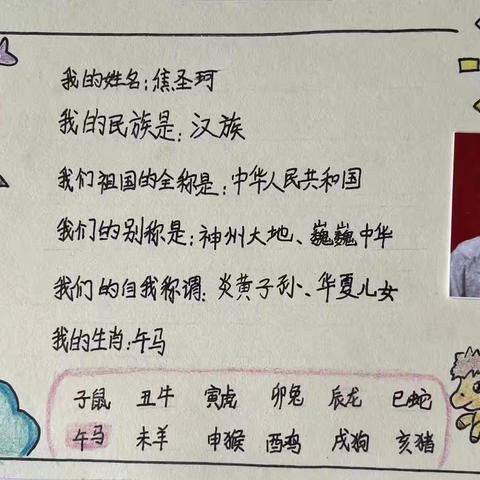 我的姓名：焦圣珂
我的民族是：汉族
我们祖国的全称是：中华人民共和国
我们的别称是：神州大地、巍巍中华
我们的自我称谓：炎黄子孙、华夏儿女
我的生肖：午马
子鼠 丑牛 寅虎 卯兔 辰龙 巳蛇
午马 未羊 申猴 酉鸡 戌狗 亥猪